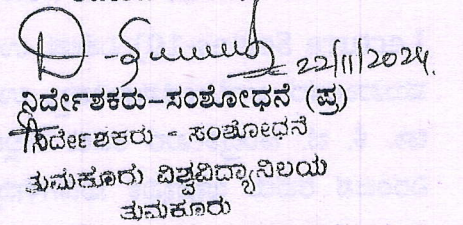 22/11/2024.
ನಿರ್ದೇಶಕರು-ಸಂಶೋಧನೆ (ಪ್ರ)
ನಿರ್ದೇಶಕರು - ಸಂಶೋಧನೆ
ತುಮಕೂರು ವಿಶ್ವವಿದ್ಯಾನಿಲಯ
ತುಮಕೂರು